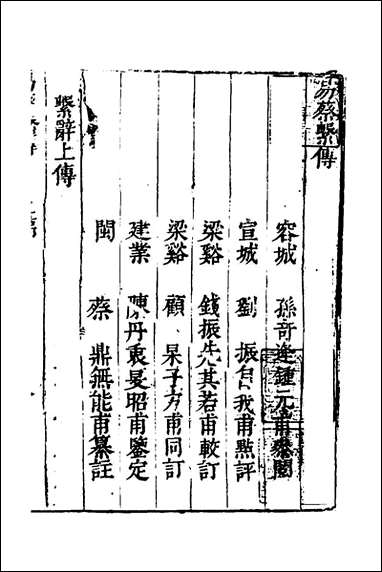 易蔡繫傳
容城 孫奇逢鍾元甫參閱
宣城 劉振自我甫點評
梁谿 錢振先其若甫較訂
梁谿 顧杲子方甫同訂
建業 陳丹衷旻昭甫鑒定
閩 蔡鼎無能甫纂註
繫辭上傳